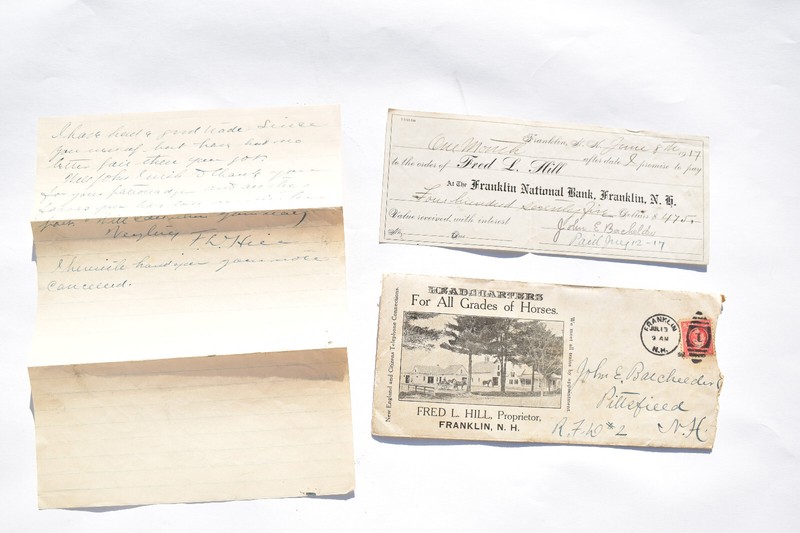 I have had a good trade since
you were up but have had no
better pair than your
Well John I wish to thank you
for your patronage and
Very truly F. L. Hill
I herewith hand you your note
cancelled.
Franklin, N. H. June 8th 1917
One Month after date I promise to pay
to the order of Fred L. Hill
At The Franklin National Bank, Franklin, N. H.
Four hundred seventy five Dollars $475.
Value received, with interest
John E Bachelder
No. Due
Paid July 12-17
HEADQUARTERS
For All Grades of Horses.
New England and Citizens Telephone Connections.
We meet all trains by appointment.
FRED L. HILL, Proprietor,
FRANKLIN, N. H.
FRANKLIN
JUL 13
9 AM
N.H.
John E. Bachelder
Pittsfield
R.F.D #2 N.H.